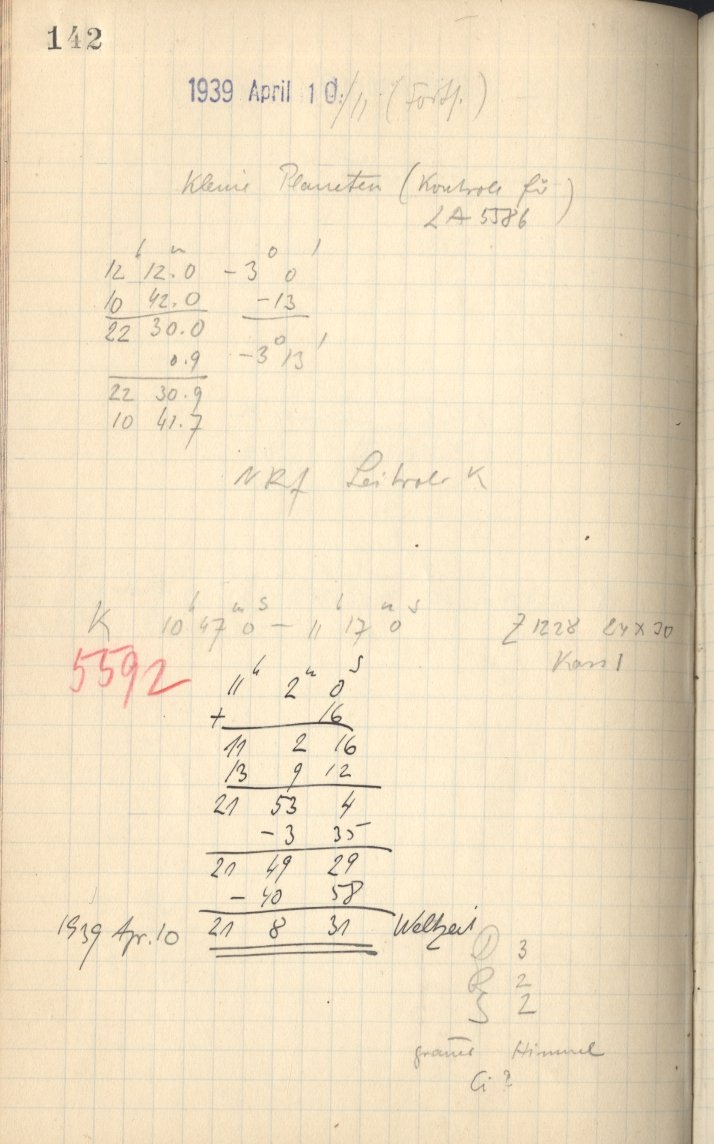 142
1939 April 10./11. (Forts.)
Kleine Planeten (Kontrolle für
LA 5586)
12 h 12.0 m -3° 0'
10 42.0 -13
22 30.0
0.9 -3° 13'
22 30.9
10 41.7
NRf K
K 10h 47m 0s — 11h 17m 0s Z 1228 24 x 30
5592 Kass 1
11h 2m 0s
+ 16
11 2 16
13 9 12
21 53 4
-3 35
21 49 29
-40 58
1939 Apr. 10 21 8 31 Weltzeit
D 3
R 2
S 2
Himmel
Ci ?